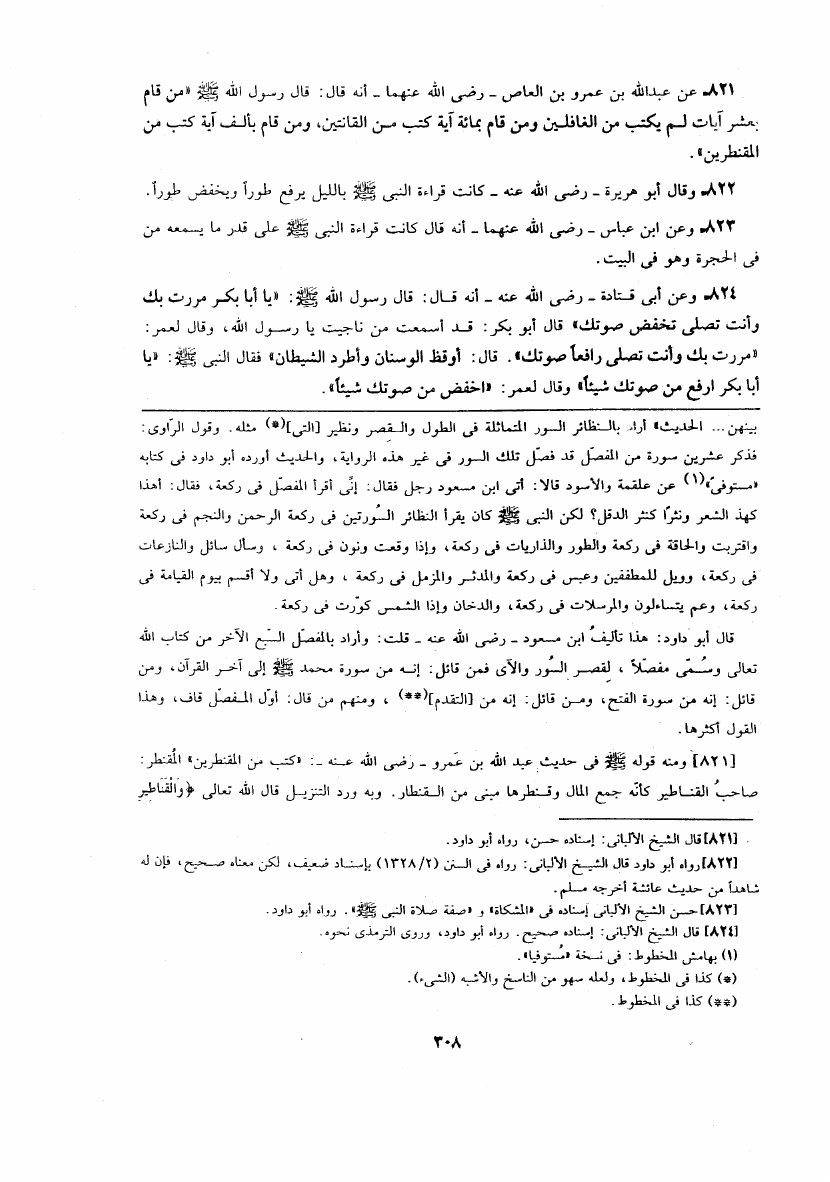 ٨٢١ـ عن عبدالله بن عمرو بن العاص ـ رضى الله عنهما ـ أنه قال: قال رسول الله ﷺ «من قام
بعشر آيات لم يكتب من الغافلين ومن قام بمائة آية كتب من القانتين، ومن قام بألف آية كتب من
المقنطرين».
٨٢٢ـ وقال أبو هريرة ـ رضى الله عنه ـ كانت قراءة النبى ﷺ بالليل يرفع طوراً ويخفض طوراً.
٨٢٣ـ وعن ابن عباس ـ رضى الله عنهما ـ أنه قال كانت قراءة النبى ﷺ على قدر ما يسمعه من
فى الحجرة وهو فى البيت.
٨٢٤ـ وعن أبى قتادة ـ رضى الله عنه ـ أنه قال: قال رسول الله ﷺ: «يا أبا بكر مررت بك
وأنت تصلى تخفض صوتك» قال أبو بكر: قد أسمعت من ناجيت يا رسول الله، وقال لعمر:
«مررت بك وأنت تصلى رافعاً صوتك». قال: أوقظ الوسنان وأطرد الشيطان» فقال النبى ﷺ: «يا
أبا بكر ارفع من صوتك شيئاً» وقال لعمر: «اخفض من صوتك شيئاً».
بينهن... الحديث» أراد بالنظائر السور المتماثلة فى الطول والقصر ونظير [التى](*) مثله. وقول الرّاوى:
فذكر عشرين سورة من المفصّل قد فصّل تلك السور فى غير هذه الرواية، والحديث أورده أبو داود فى كتابه
«مستوفىً»(١) عن علقمة والأسود قالا: أتى ابن مسعود رجل فقال: إنِّى أقرأ المفصّل فى ركعة، فقال: أهذا
كهذ الشعر ونثرًا كنثر الدقل؟ لكن النبى ﷺ كان يقرأ النظائر السُّورتين فى ركعة الرحمن والنجم فى ركعة
واقتربت والحاقة فى ركعة والطور والذاريات فى ركعة، وإذا وقعت ونون فى ركعة ، وسأل سائل والنازعات
فى ركعة، وويل للمطففين وعبس فى ركعة والمدثر والمزمل فى ركعة ، وهل أتى ولا أقسم بيوم القيامة فى
ركعة، وعم يتساءلون والمرسلات فى ركعة، والدخان وإذا الشمس كوّرت فى ركعة.
قال أبو داود: هذا تأليفُ ابن مسعود ـ رضى الله عنه ـ قلت: وأراد بالمفصّل السّبع الآخر من كتاب الله
تعالى وسُمّى مفصّلاً ، لقصر السُّور والآى فمن قائل: إنه من سورة محمد ﷺ إلى آخر القرآن، ومن
قائل: إنه من سورة الفتح، ومن قائل: إنه من [التقدم](**) ، ومنهم من قال: أوّل المفصّل قاف، وهذا
القول أكثرها.
[٨٢١] ومنه قوله ﷺ فى حديث عبد الله بن عَمرو ـ رضى الله عنه ـ: «كتب من المقنطرين» المُقنطر:
صاحبُ القناطير كأنّه جمع المال وقنطرها مبنى من القنطار. وبه ورد التنزيل قال الله تعالى ﴿وَالْقَنَاطِيرِ
[٨٢١] قال الشيخ الألبانى: إسناده حسن، رواه أبو داود.
[٨٢٢] رواه أبو داود قال الشيخ الألبانى: رواه فى السنن (١٣٢٨/٢) بإسناد ضعيف، لكن معناه صحيح، فإن له
شاهداً من حديث عائشة أخرجه مسلم.
[٨٢٣] حسن الشيخ الألبانى إسناده فى «المشكاة» و «صفة صلاة النبى ﷺ». رواه أبو داود.
[٨٢٤] قال الشيخ الألبانى: إسناده صحيح. رواه أبو داود، وروى الترمذى نحوه.
(١) بهامش المخطوط: فى نسخة «مُستوفيا».
(*) كذا فى المخطوط، ولعله سهو من الناسخ والأشبه (الشىء).
(**) كذا فى المخطوط.
٣٠٨